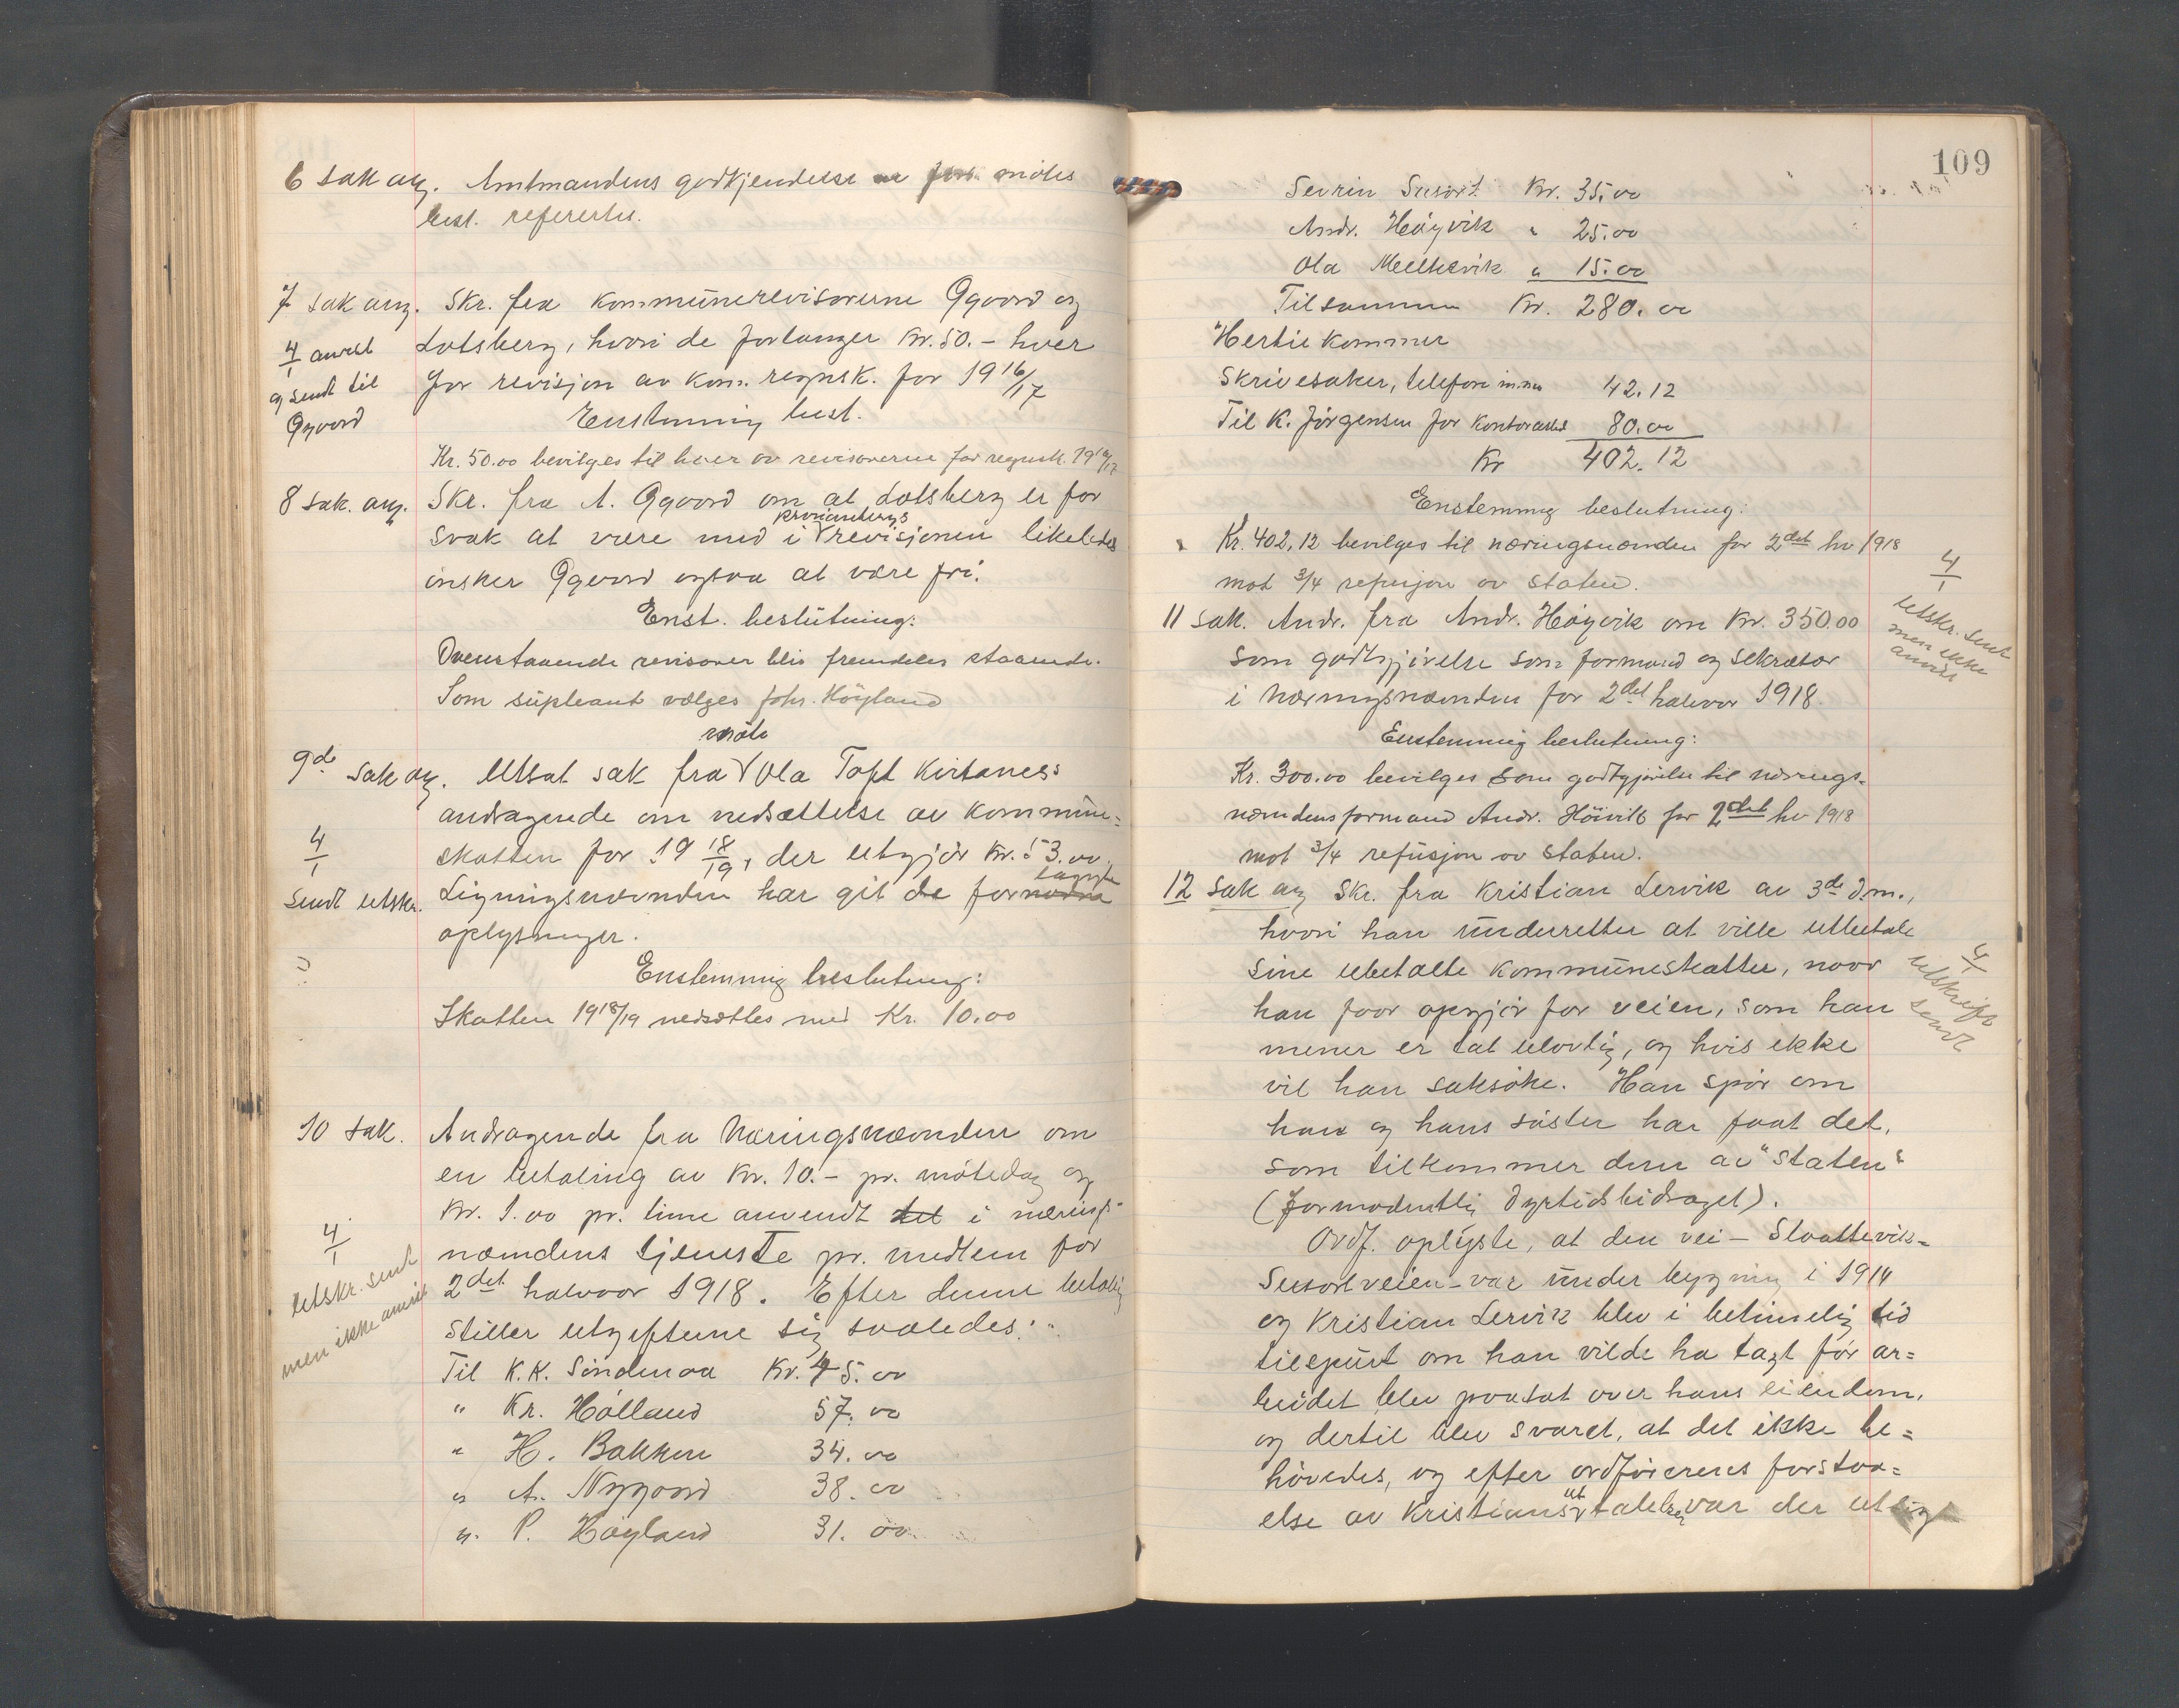 6 sak ang. Amtmandens godkjendelse av møtes
best. refereres.
7 sak ang. Skr. fra kommunerevisorerne Qgvord og
Lotsberg, hvori de forlanger kr. 50.- hver
for revisjon av kom. regnsk. for 1916/17
4/1 anvist
og sendt til
Qgvord
Enstemmig best.
Kr. 50.00 bevilges til hver av revisorerne for regnsk. 1916/17
8 sak. ang. Skr. fra A. Qgvord om at Lotsberg er for
svak at være med i provianterings revisjonen likeledes
ønsker Qgvord ogsaa at være fri.
Enst. beslutning:
Ovenstaaende revisorer blir fremdeles staaende.
Som supleant vælges Johs. Høyland
9de sak ang. Utsat sak fra møte Ola Toft Kirtaness
andragende om nedsættelse av kommune=
skatten for 19 18/19, der utgjør kr. 53.00.
Ligningsnævnden har git de forlangte
oplysninger.
4/1
sendt utskr.
Enstemmig beslutning:
Skatten 1918/19 nedsættes med Kr. 10.00
10 sak. Andragende fra Næringsnævnden om
en betaling av kr. 10.- pr. møtedag og
kr. 1.00 pr. time anvendt i nærings-
nævndens tjeneste pr. medlem for
2det halvaar 1918. Efter denne betaling
stiller utgifterne sig saaledes:
4/1
Utskr. sent
men ikke anvist
Til K.K. Søndenaa Kr. 45.00
" Kr. Hålland 57.00
" H. Bakken 34.00
" A. Nygaard 38.00
" P. Høyland 31.00
109
Sevrin Susort Kr. 35.00
Andr. Høyvik " 25.00
Ola Melhevik " 15.00
Tilsammen Kr. 280.00
Hertil kommer
Skrivesaker, telefon m.m. 42.12
Til K. Jørgensen for kontorarbeid 80.00
Kr 402.12
Enstemmig beslutning:
Kr. 402,12 bevilges til næringsnævnden for 2det hv 1918
mot 3/4 refusjon av staten.
4/1
Utskr. sent
men ikke
anvist
11 sak. Andr. fra Andr. Høyvik om kr. 350.00
som godtgjørelse som formand og sekretær
i næringsnævnden for 2det halvaar 1918.
Enstemmig beslutning:
Kr. 300.00 bevilges som godtgjørelse til nærings=
nævndensformand Andr. Höivik for 2det hv 1918
mot 3/4 refusjon av staten.
12 sak ang Skr. fra Kristian Lervik av 3de d.m.,
hvori han underretter at ville utbetale
sine ubetalte kommuneskatter, naar
han faar opgjør for veien, som han
mener er tat ulovlig, og hvis ikke
vil han saksøke. Han spør om
han og hans søster har faat det,
som tilkommer dem av "staten"
(formodentlig dyrtidsbidraget).
4/1
Utskrift
sendt
Ordf. oplyste, at den vei - Slaattevik-
Susortveien - var under bygning i 1914
og Kristian Lervik blev i betimelig tid
tilspurt om han vilde ha tagt før ar=
beidet blev paatat over hans eiendom,
og dertil blev svaret, at det ikke be=
høvedes, og efter ordførerens forstaa=
else av Kristians uttalelser, var der